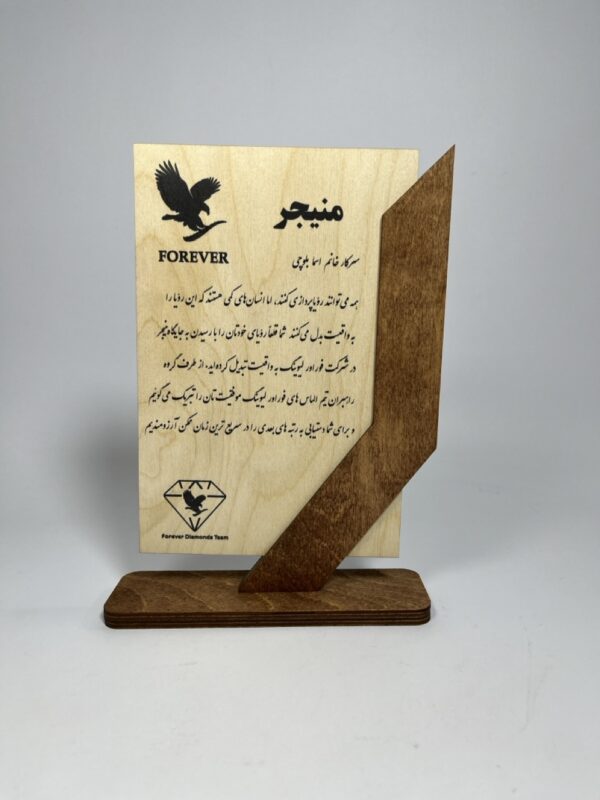 FOREVER
منیجر
سرکار خانم اسما بلوچی
همه می‌توانند رؤیاپردازی کنند، اما انسان‌های کمی هستند که این رؤیا را
به واقعیت بدل می‌کنند شما قطعاً رؤیای خودتان را با رسیدن به جایگاه منیجر
در شرکت فوراور لیوینگ به واقعیت تبدیل کرده‌اید، از طرف گروه
راهبران تیم الماس های فوراور لیوینگ موفقیت تان را تبریک می گوئیم
و برای شما دستیابی به رتبه های بعدی را در سریع ترین زمان ممکن آرزومندیم
Forever Diamonds Team